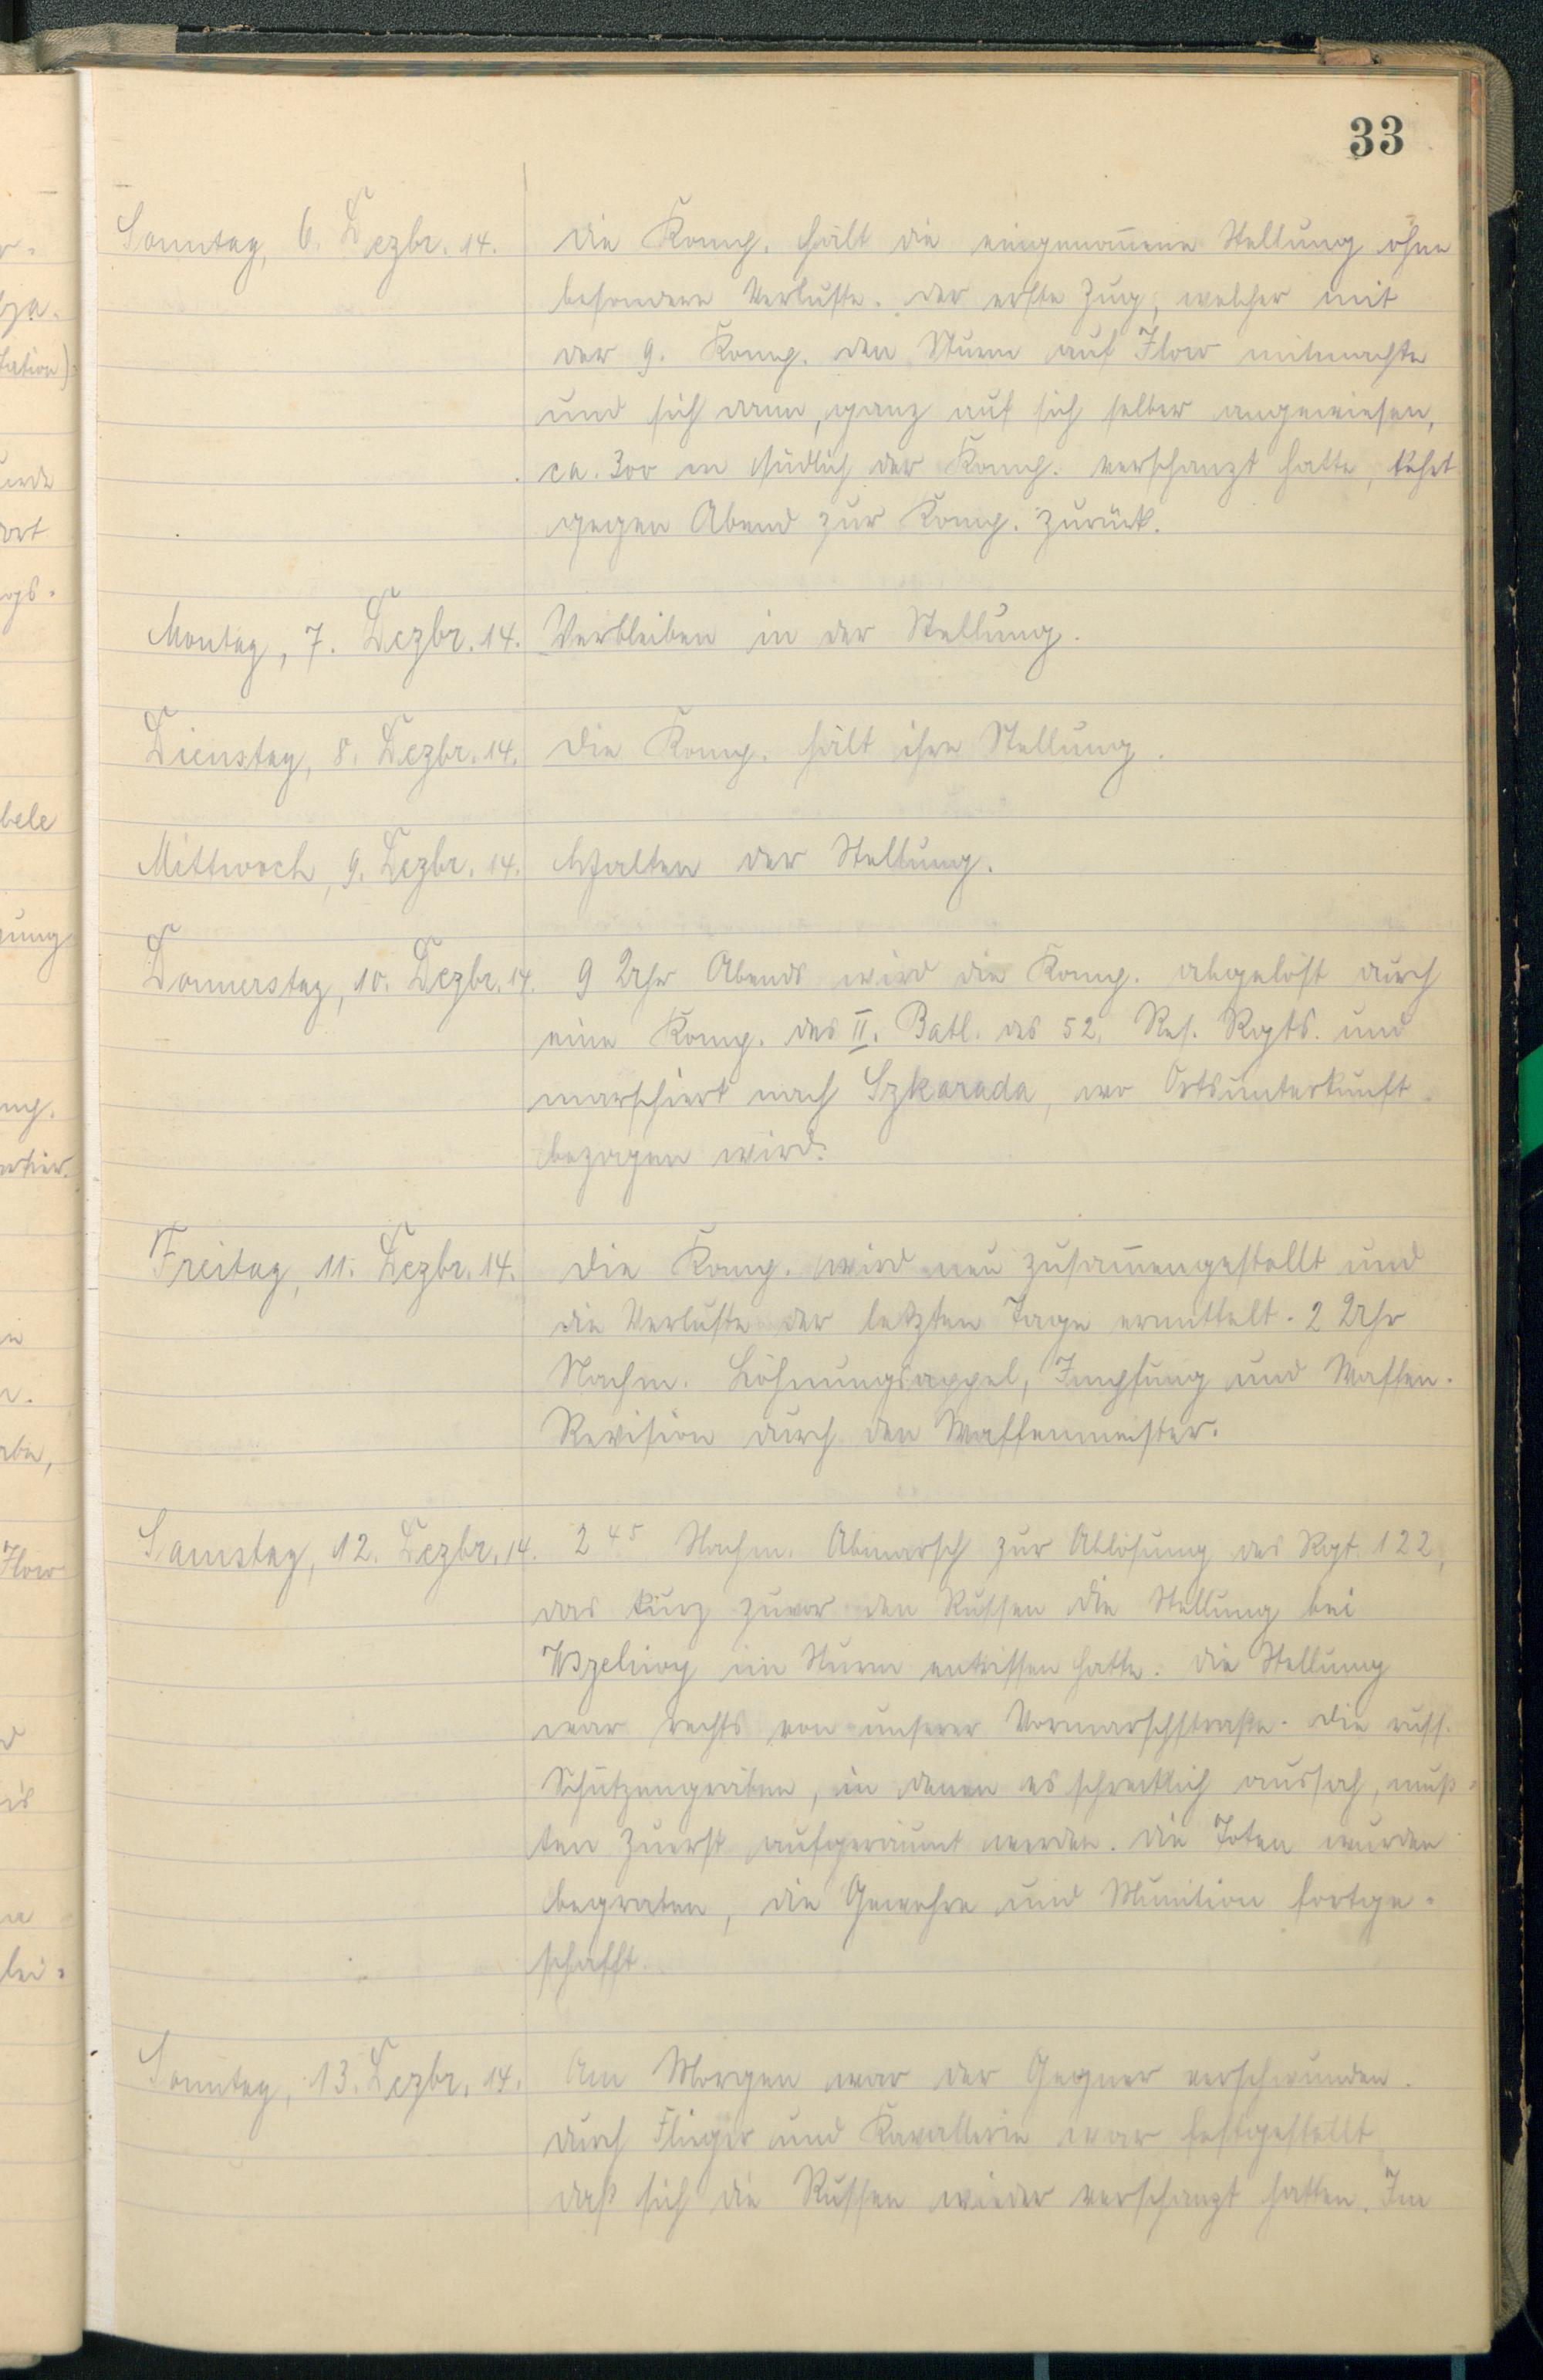 33
Sonntag, 6. Dezbr. 14. Die Komp. hält die eingenom̄ene Stellung ohne
besondere Verluste. Der erste Zug, welcher mit
der 9. Komp. den Sturm auf Ilow mitmachte
und sich dann, ganz auf sich selber angewiesen,
ca. 300 m südlich der Komp. verschanzt hatte, kehrt
gegen Abend zur Komp. zurück.
Montag, 7. Dezbr. 14. Verbleiben in der Stellung.
Dienstag, 8. Dezbr. 14. Die Komp. hält ihre Stellung.
Mittwoch, 9. Dezbr. 14. Halten der Stellung.
Donnerstag, 10. Dezbr. 14. 9 Uhr Abends wird die Komp. abgelöst durch
eine Komp. des II. Batl. des 52. Res. Rgts. und
marschiert nach Szkarada, wo Ortsunterkunft
bezogen wird.
Freitag, 11. Dezbr. 14. Die Komp. wird neu zusam̄engestellt und
die Verluste der letzten Tage ermittelt. 2 Uhr
Nachm. Löhnungsappel, Impfung und Waffen-
Revision durch den Waffenmeister.
Samstag, 12. Dezbr. 14. 2 45 Nachm. Abmarsch zur Ablösung des Rgt. 122,
das kurz zuvor den Russen die Stellung bei
im Sturm entrissen hatte. Die Stellung
war rechts von unserer Vormarschstraße. Die russ.
Schützengräben, in denen es schrecklich aussah, muß-
ten zuerst aufgeräumt werden. Die Toten wurden
begraben, die Gewehre und Munition fortge-
schafft.
Sonntag, 13. Dezbr. 14. Am Morgen war der Gegner verschwunden.
Durch Flieger und Kavallerie war festgestellt
daß sich die Russen wieder verschanzt hatten. Im